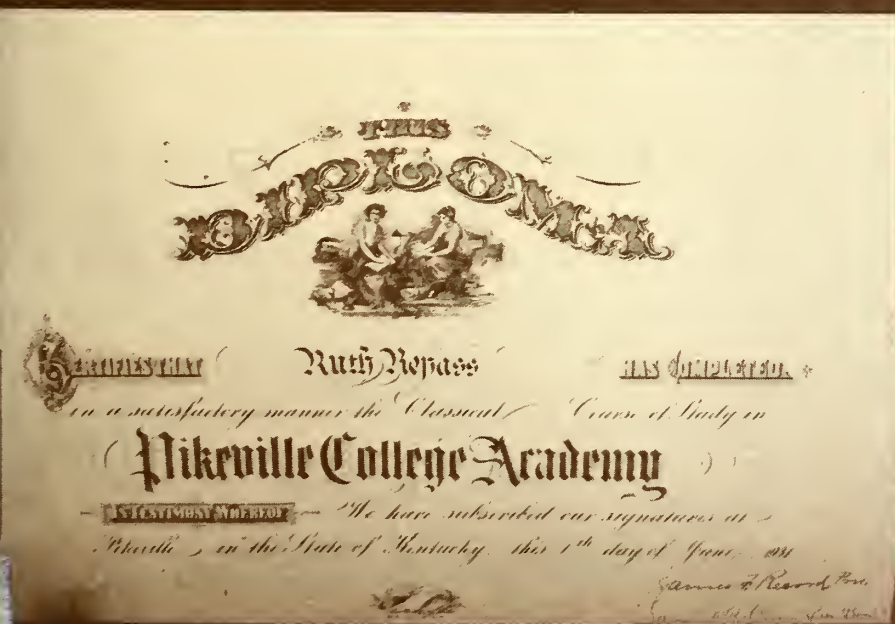 THIS
DIPLOMA
CERTIFIES THAT Ruth Repass HAS COMPLETED.
in a satisfactory manner the Classical Course of Study in
Pikeville College Academy
IN TESTIMONY WHEREOF We have subscribed our signatures at
Pikeville, in the State of Kentucky, this 1th day of June
James F. Record Pres.